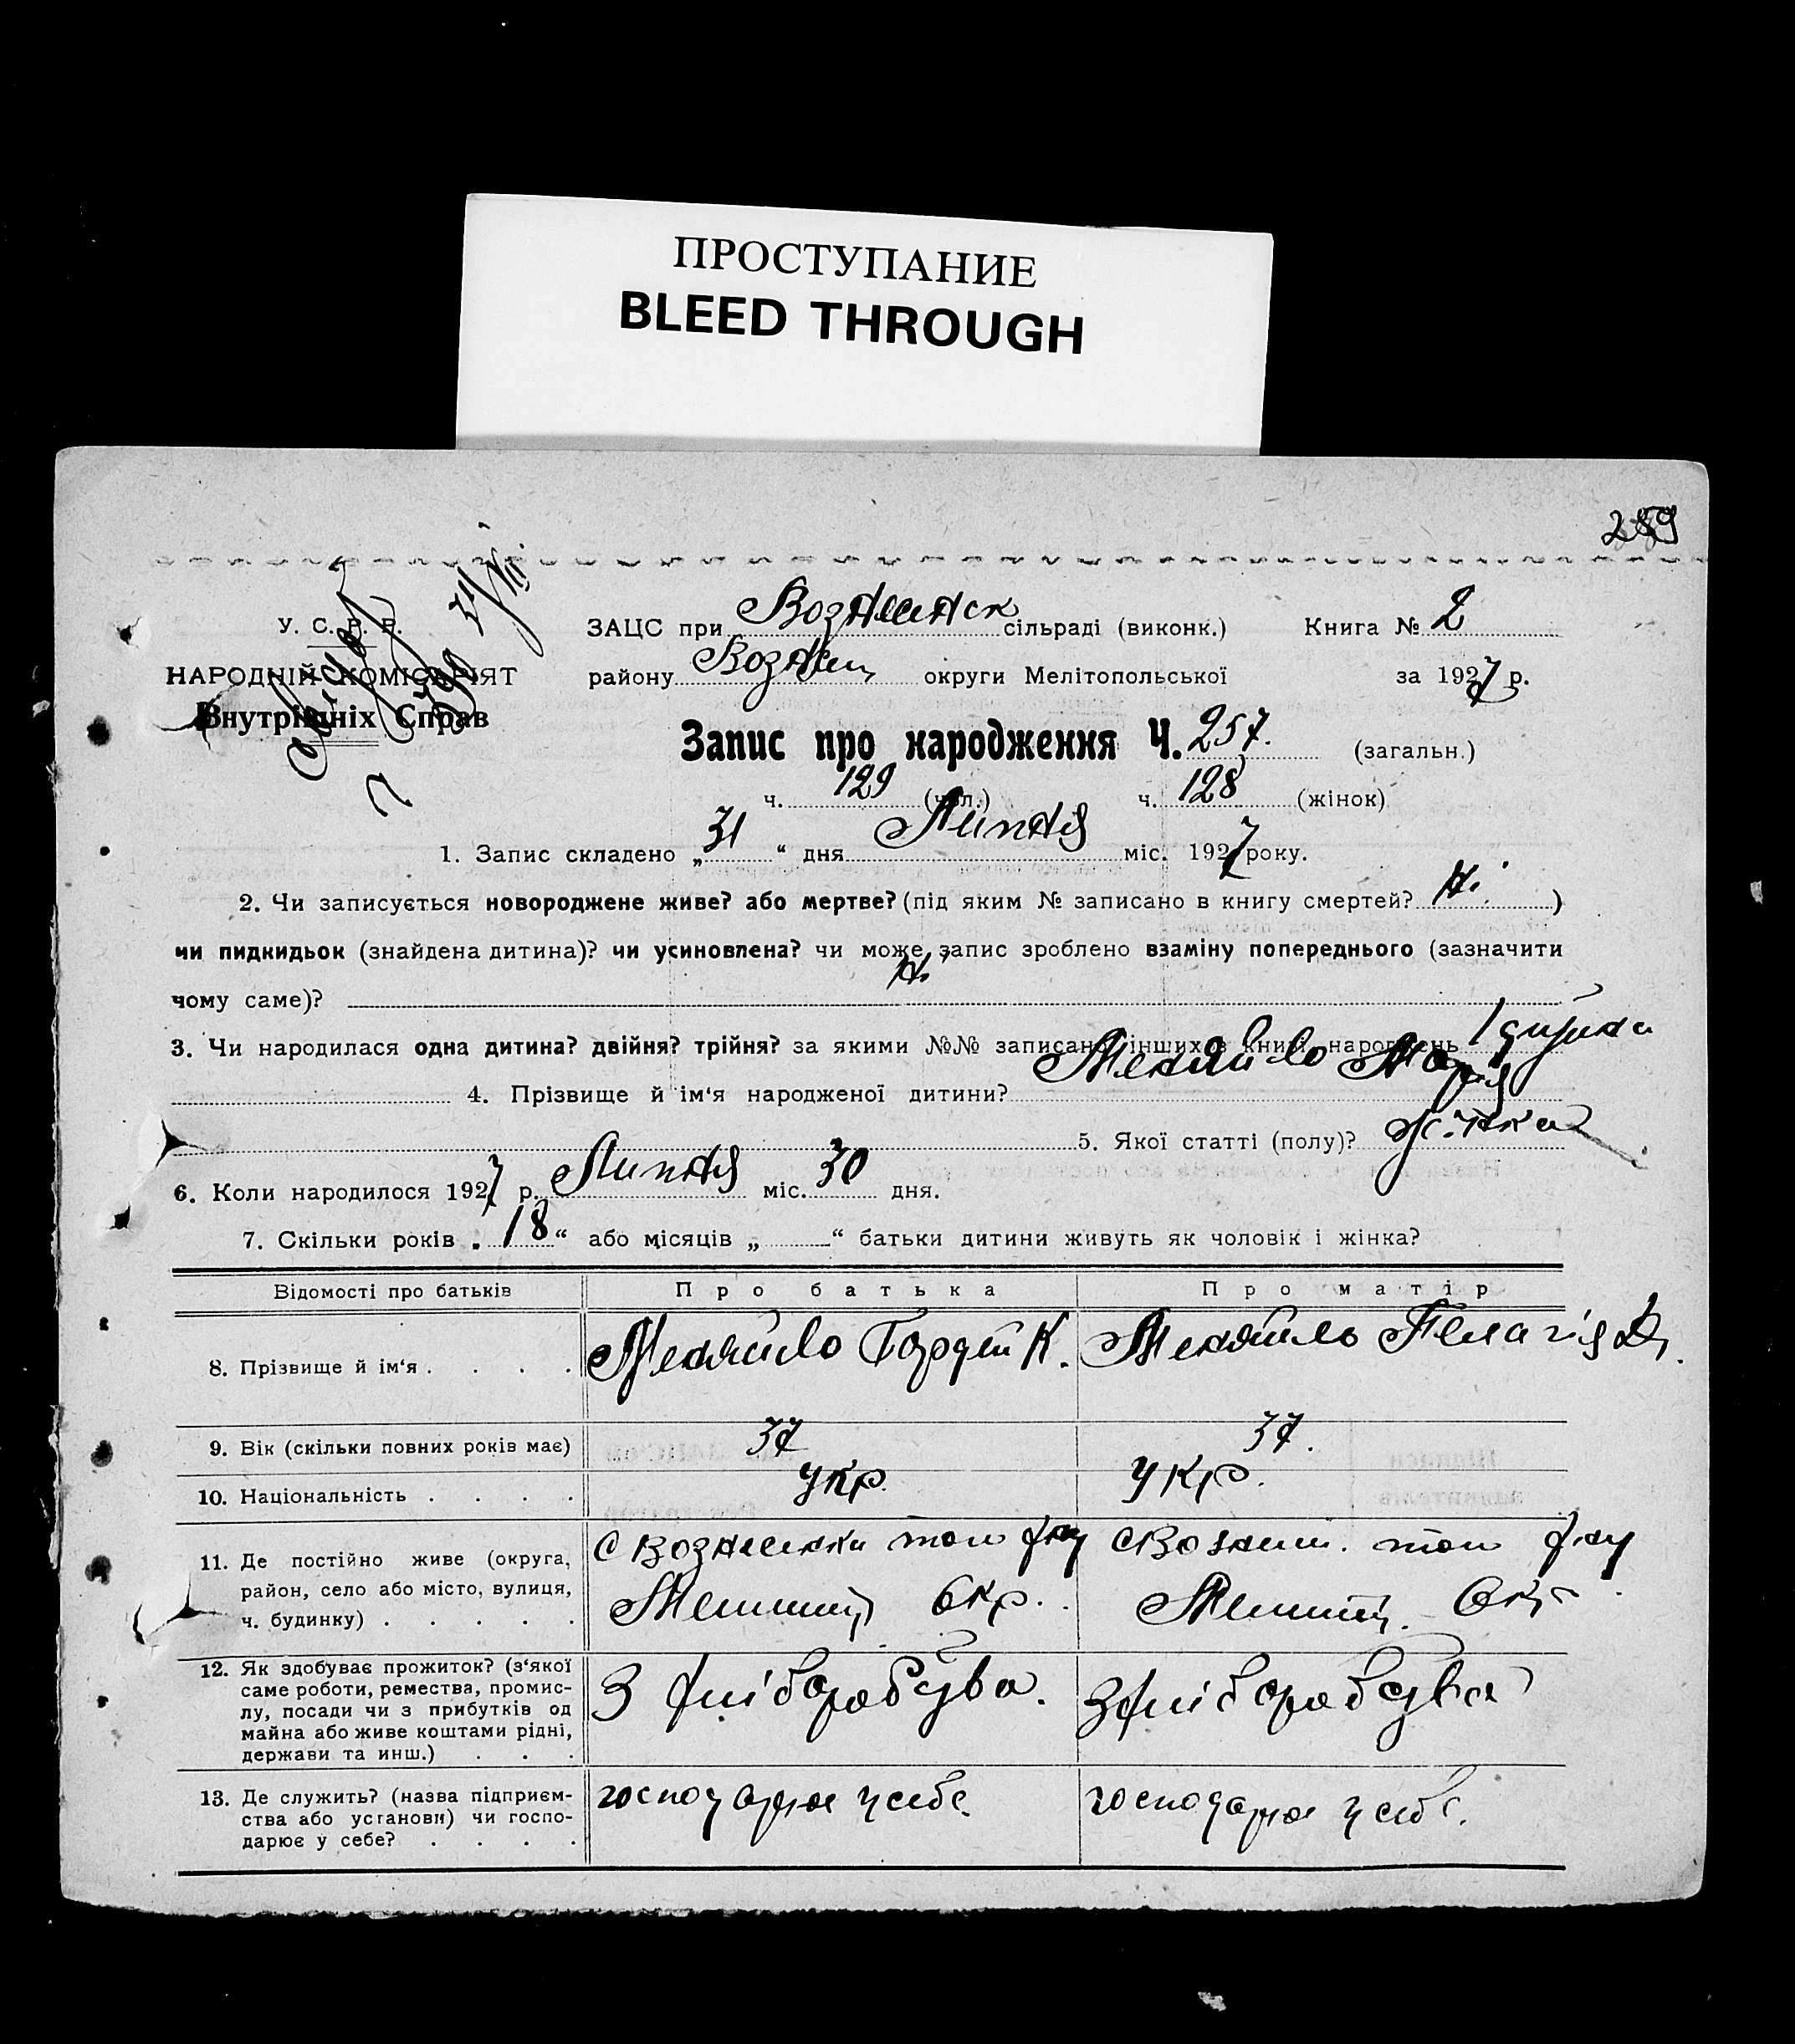 ПРОСТУПАНИЕ
BLEED THROUGH
289
У. С. Р. Р.
НАРОДНІЙ КОМІСАРІЯТ
Внутрішніх Справ
ЗАЦС при Вознесенск сільраді (виконк.) Книга № 2
району Возне округи Мелітопольської за 1927 р.
Запис про народження Ч. 257. (загальн.)
ч. 129 (чол.) ч. 128 (жінок)
1. Запис складено „ 31 “ дня Липня міс. 1927 року.
2. Чи записується новороджене живе? або мертве? (під яким № записано в книгу смертей? Ні )
чи пидкидьок (знайдена дитина)? чи усиновлена? чи може запис зроблено взаміну попереднього (зазначити
чому саме)? Ні
3. Чи народилася одна дитина? двійня? трійня? за якими №№ записано інших в книзі народжень 1 дитина
4. Прізвище й ім‘я народженої дитини? Меняйло Марія
5. Якої статті (полу)? Жінка
6. Коли народилося 1927 р. Липня міс. 30 дня.
7. Скільки років „ 18 “ або місяців „ “ батьки дитини живуть як чоловік і жінка?
Відомості про батьків Про батька Про матір
8. Прізвище й ім‘я . . . . Меняйло Гордій К. Меняйло Пелагія Д.
9. Вік (скільки повних років має) 37 37.
10. Національність . . . . Укр. Укр.
11. Де постійно живе (округа, район, село або місто, вулиця, ч. будинку) . . . . .
С Вознесенки того ж р-ну
Меліт Окр.
С Вознес. того ж р-ну
Меліт. Окр
12. Як здобуває прожиток? (з‘якої саме роботи, ремества, промислу, посади чи з прибутків од майна або живе коштами рідні, держави та инш.) . . .
З хліборобства.
З хліборобства
13. Де служить? (назва підприємства або установи) чи господарює у себе? . . . .
господарює у себе.
господарює у себе.